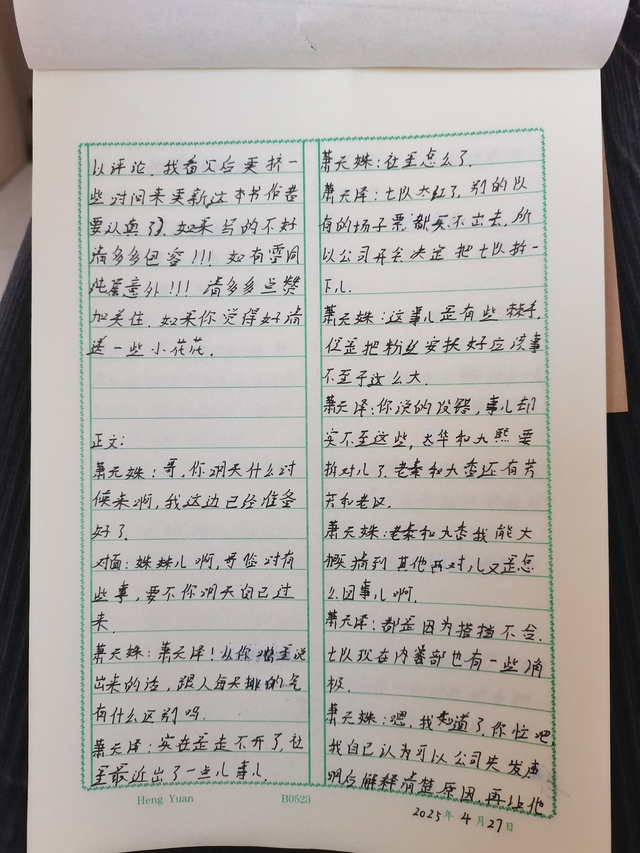 以评论，我看父后更挤一
些时间来更新这本书作者
要认真了》如果写的不好
请多多包容!!!如有雷同
纯属意外!!!请多多点赞
加关住．如果你觉得好请
送一些小花花．
正文：
萧天姝：哥，你明天什么时
候来啊，我这边已经准备
好了．
对面：姝姝儿啊，哥临时有
些事，要不你明天自己过
来．
萧天姝：萧天泽！么你嘴里说
出来的话，跟人每天排的气
有什么区别吗．
萧天泽：实在歪走不开了，社
里最近出了一些儿事儿．
萧天姝：社里怎么了．
萧天泽：七队太红了，别的队
有的场子票都买不出去，所
以公司开会决定把七队拆一
下儿．
萧天姝：这事儿歪有些棘手．
但歪把粉丝安抚好应该事
不至于这么大．
萧天泽：你说的没错，事儿却
实不至这些，太华和九熙要
拆对儿了．老秦和九李还有芳
芳和老区．
萧天姝：老秦和九李我能大
概猜到其他两对儿又歪怎
么回事儿啊．
萧天泽：都歪因为搭挡不合．
七队现在内幕部也有一些消
极．
萧天姝：嗯，我知道了，你忙吧
我自己认为可以公司先发声
明后解释清楚原因．再让他
Heng Yuan B0523
2025年4月27日